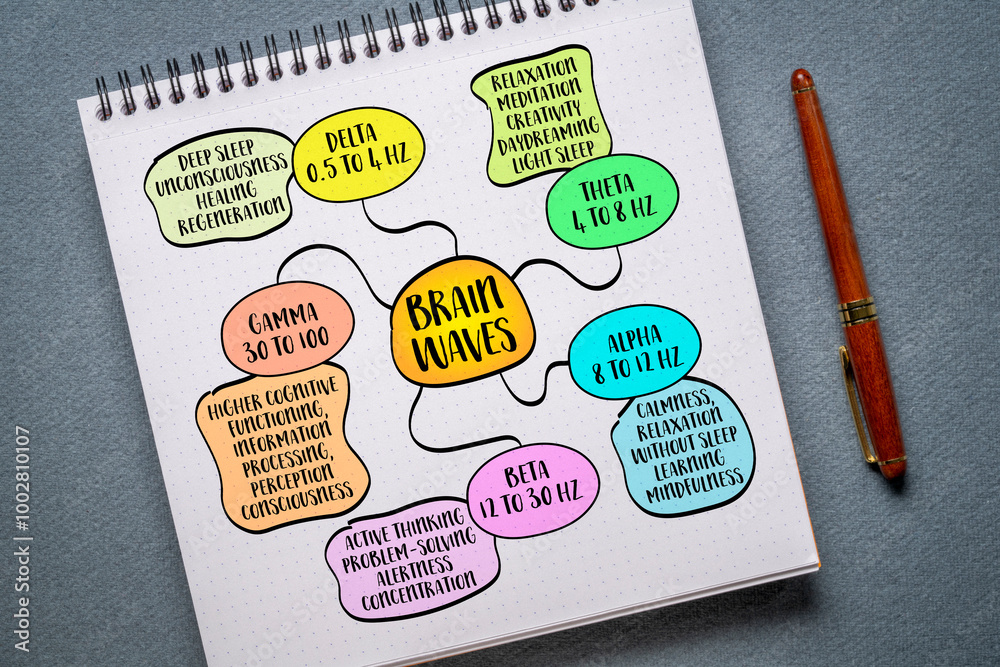 BRAIN
WAVES
DELTA
0.5 TO 4 HZ
DEEP SLEEP
UNCONSCIOUSNESS
HEALING
REGENERATION
THETA
4 TO 8 HZ
RELAXATION
MEDITATION
CREATIVITY
DAYDREAMING
LIGHT SLEEP
ALPHA
8 TO 12 HZ
CALMNESS,
RELAXATION
WITHOUT SLEEP
LEARNING
MINDFULNESS
BETA
12 TO 30 HZ
ACTIVE THINKING
PROBLEM-SOLVING
ALERTNESS
CONCENTRATION
GAMMA
30 TO 100
HIGHER COGNITIVE
FUNCTIONING,
INFORMATION
PROCESSING,
PERCEPTION
CONSCIOUSNESS
Adobe Stock | #1002810107
Adobe Stock